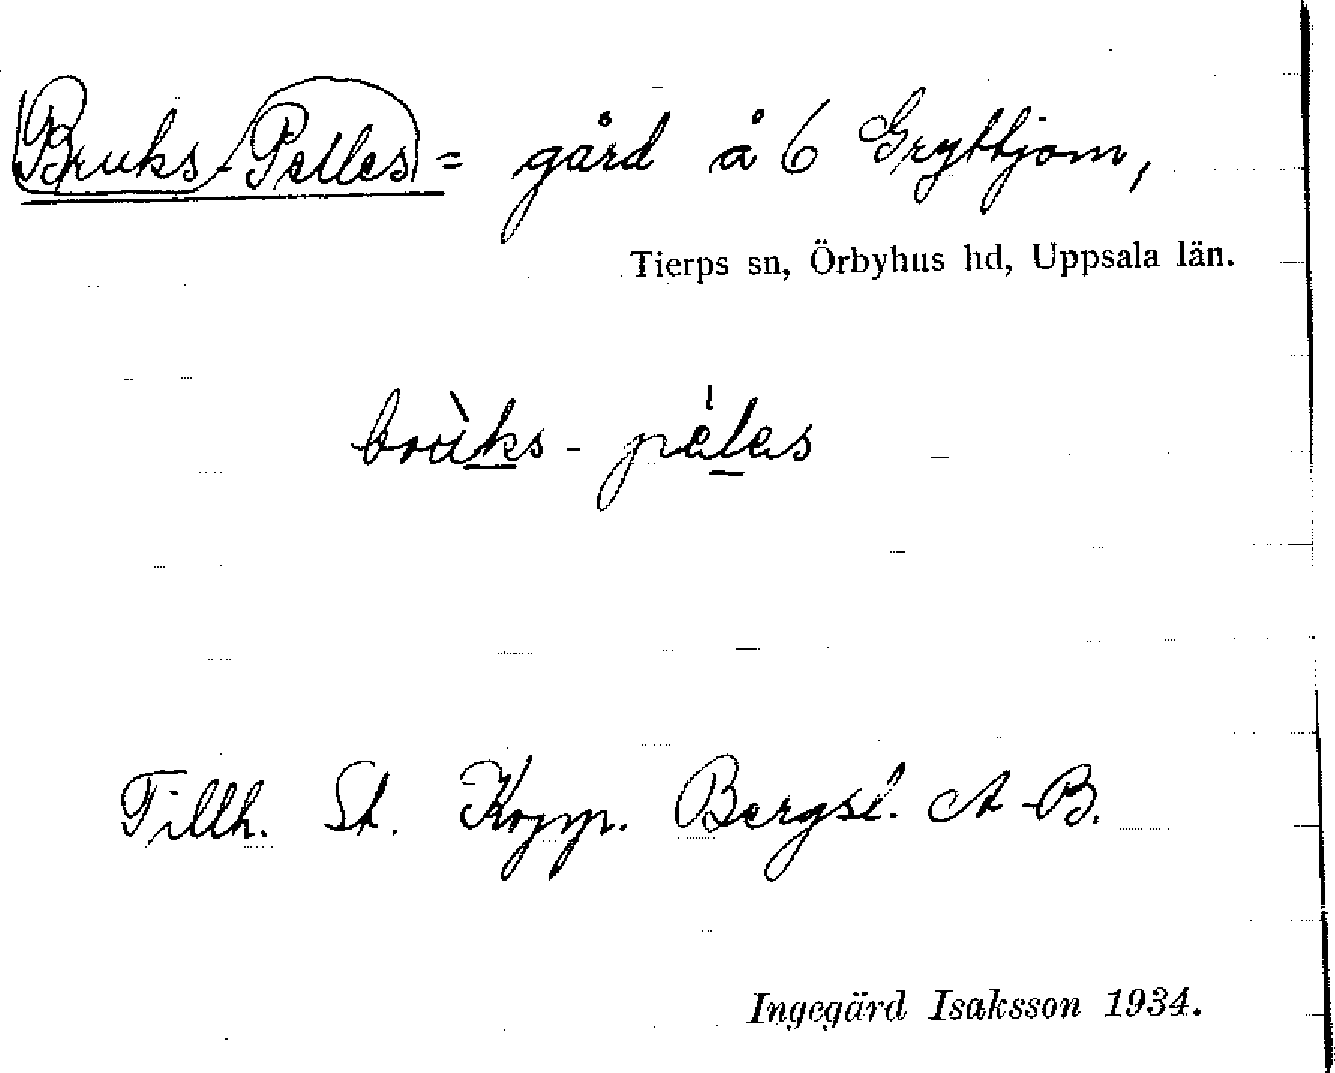 Bruks-Pelles = gård å 6 Gryttjom,
Tierps sn, Örbyhus hd, Uppsala län.
brùks - pélas
Tillh. St. Kopp. Bergsl. A-B.
Ingegärd Isaksson 1934.